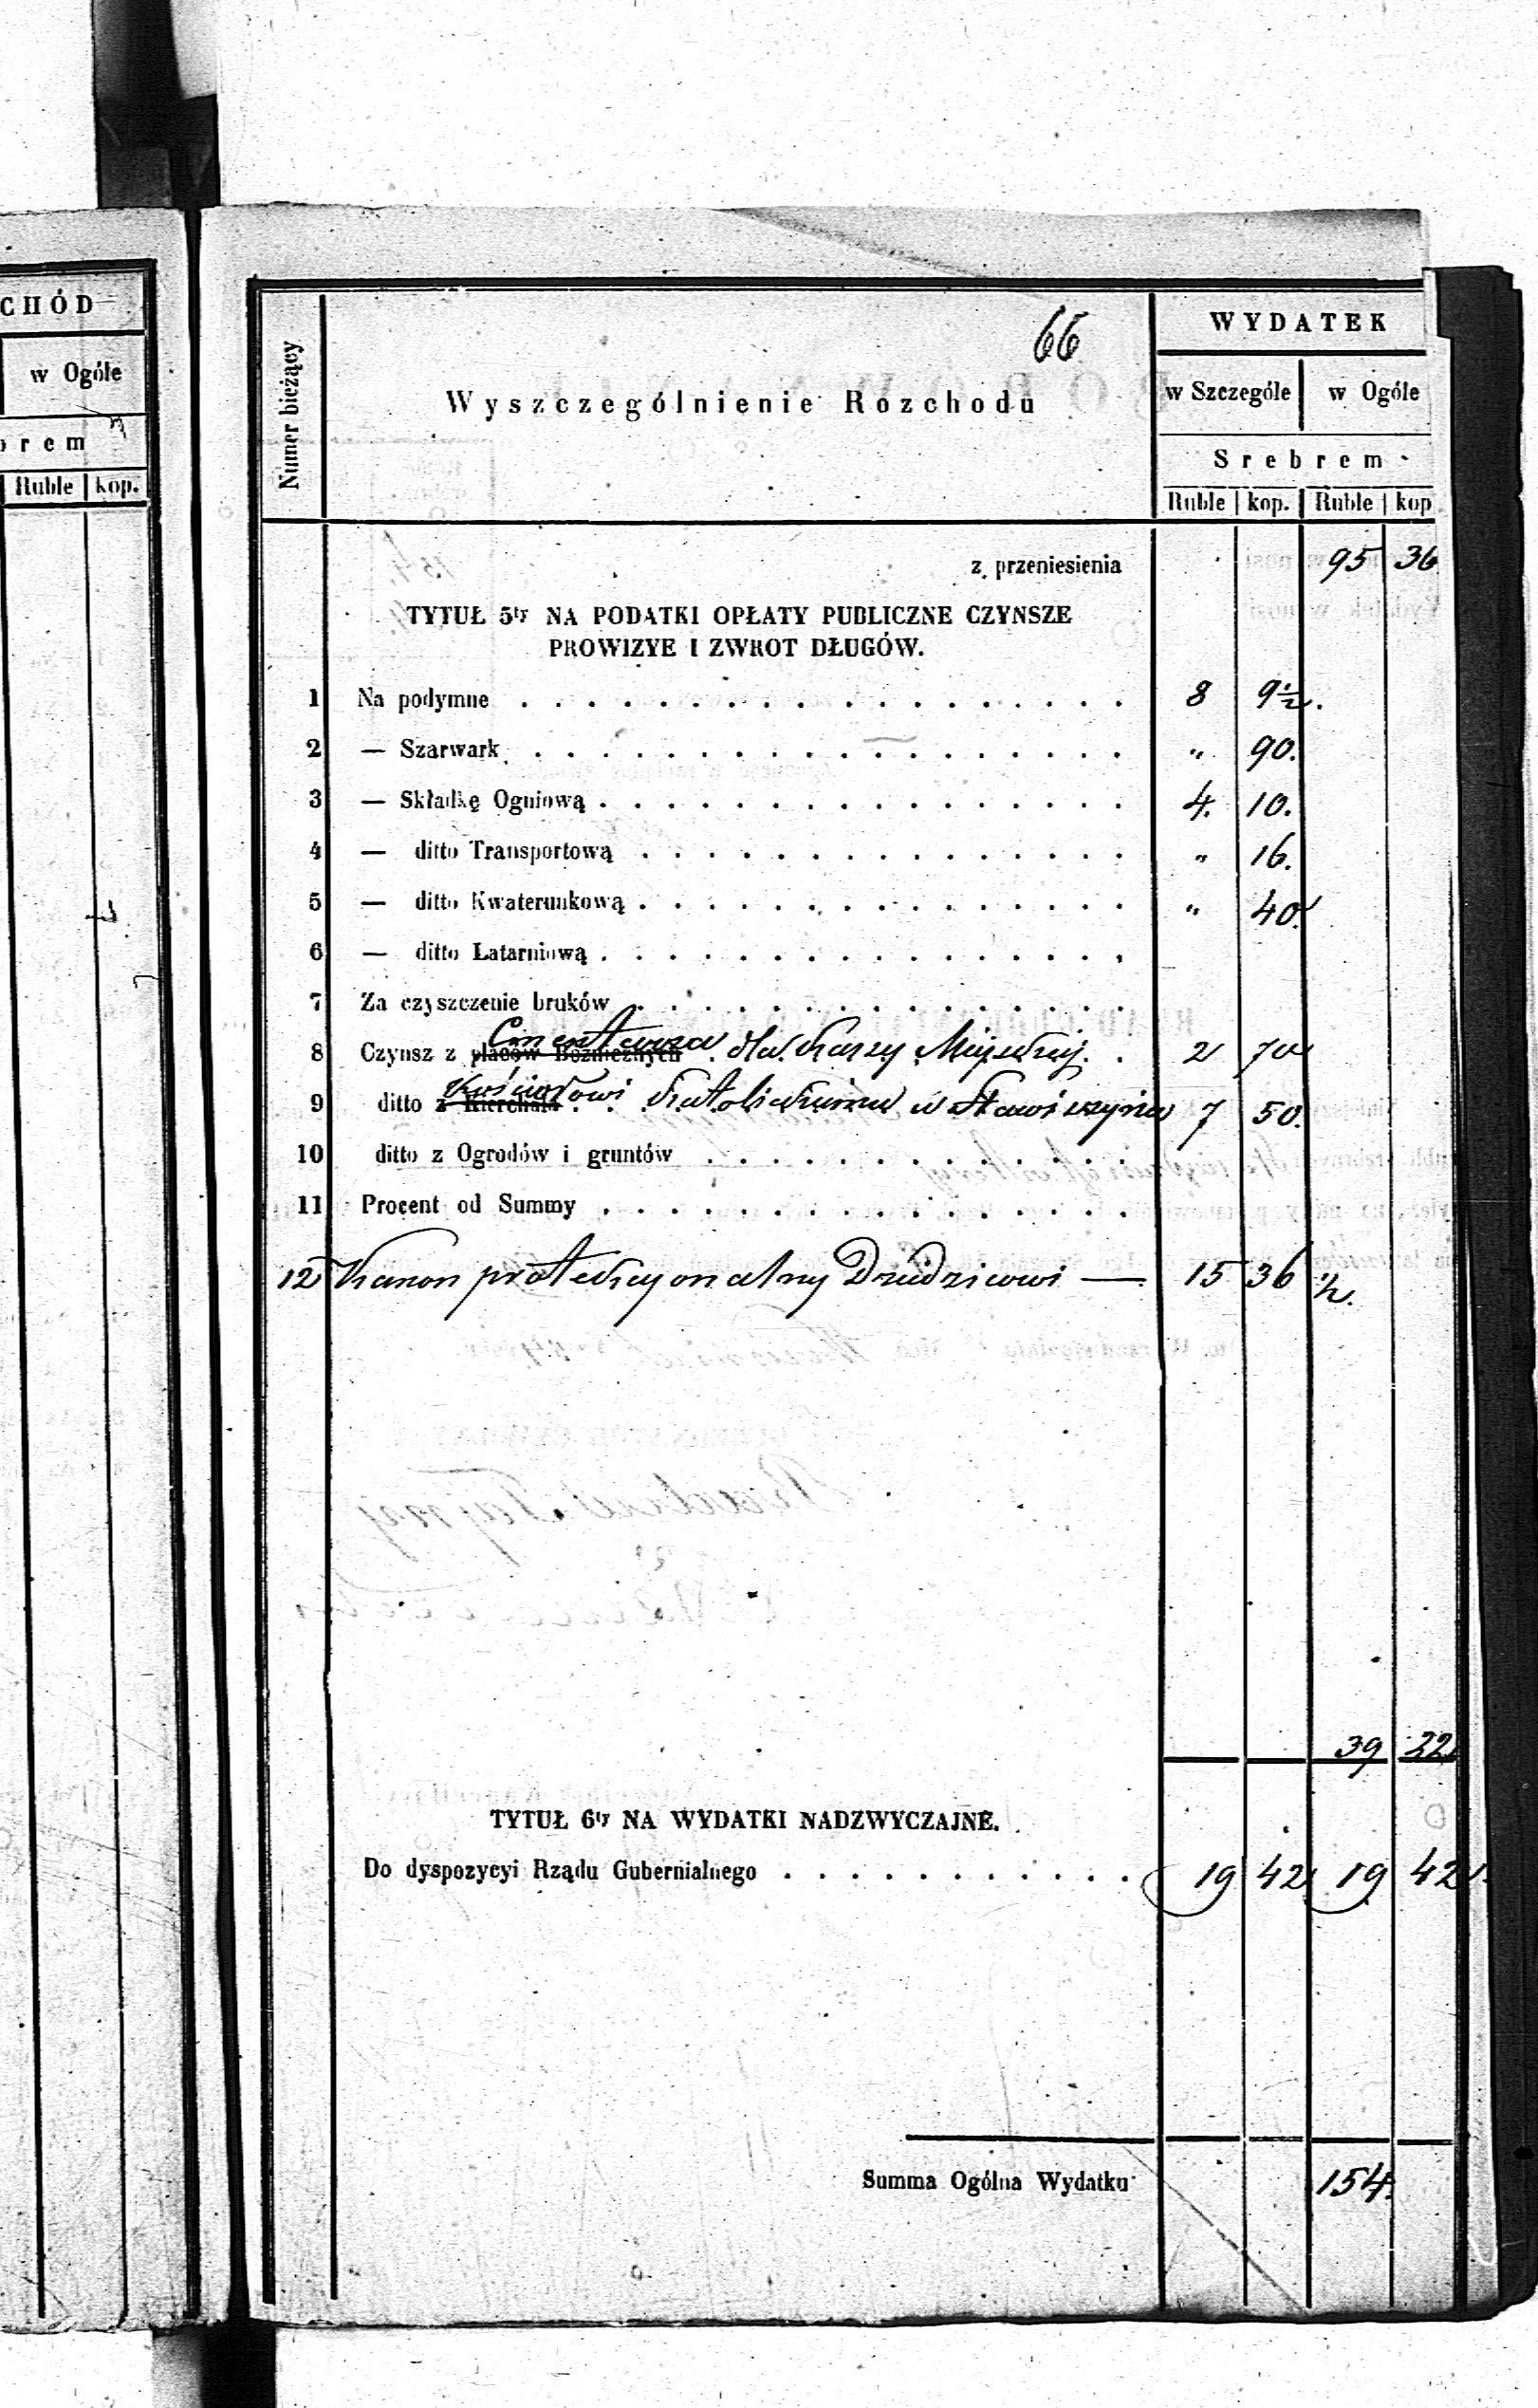 CHÓD
w Ogóle
rem
Ruble kop.
66
Numer bieżący
Wyszczególnienie Rozchodu
WYDATEK
w Szczególe w Ogóle
Srebrem
Ruble kop. Ruble kop
z przeniesienia 95 36
TYTUŁ 5ty NA PODATKI OPŁATY PUBLICZNE CZYNSZE
PROWIZYE I ZWROT DŁUGÓW.
1 Na podymne 8 9½.
2 — Szarwark „ 90.
3 — Składkę Ogniową 4. 10.
4 — ditto Transportową „ 16.
5 — ditto Kwaterunkową „ 40.
6 — ditto Latarniową
7 Za czyszczenie bruków
8 Czynsz z placów Bożnicznych Cmentarza dla Kassy Mieyskiey. 2 70
9 ditto z Kierchała Kościołowi Katolickiemu w Stawiszynie 7 50.
10 ditto z Ogrodów i gruntów
11 Procent od Summy
12 Kanon protekcyonalny Dziedzicowi — 15 36 ½.
39 22
TYTUŁ 6ty NA WYDATKI NADZWYCZAJNE.
Do dyspozycyi Rządu Gubernialnego 19 42 19 42.
Summa Ogólna Wydatku 154.